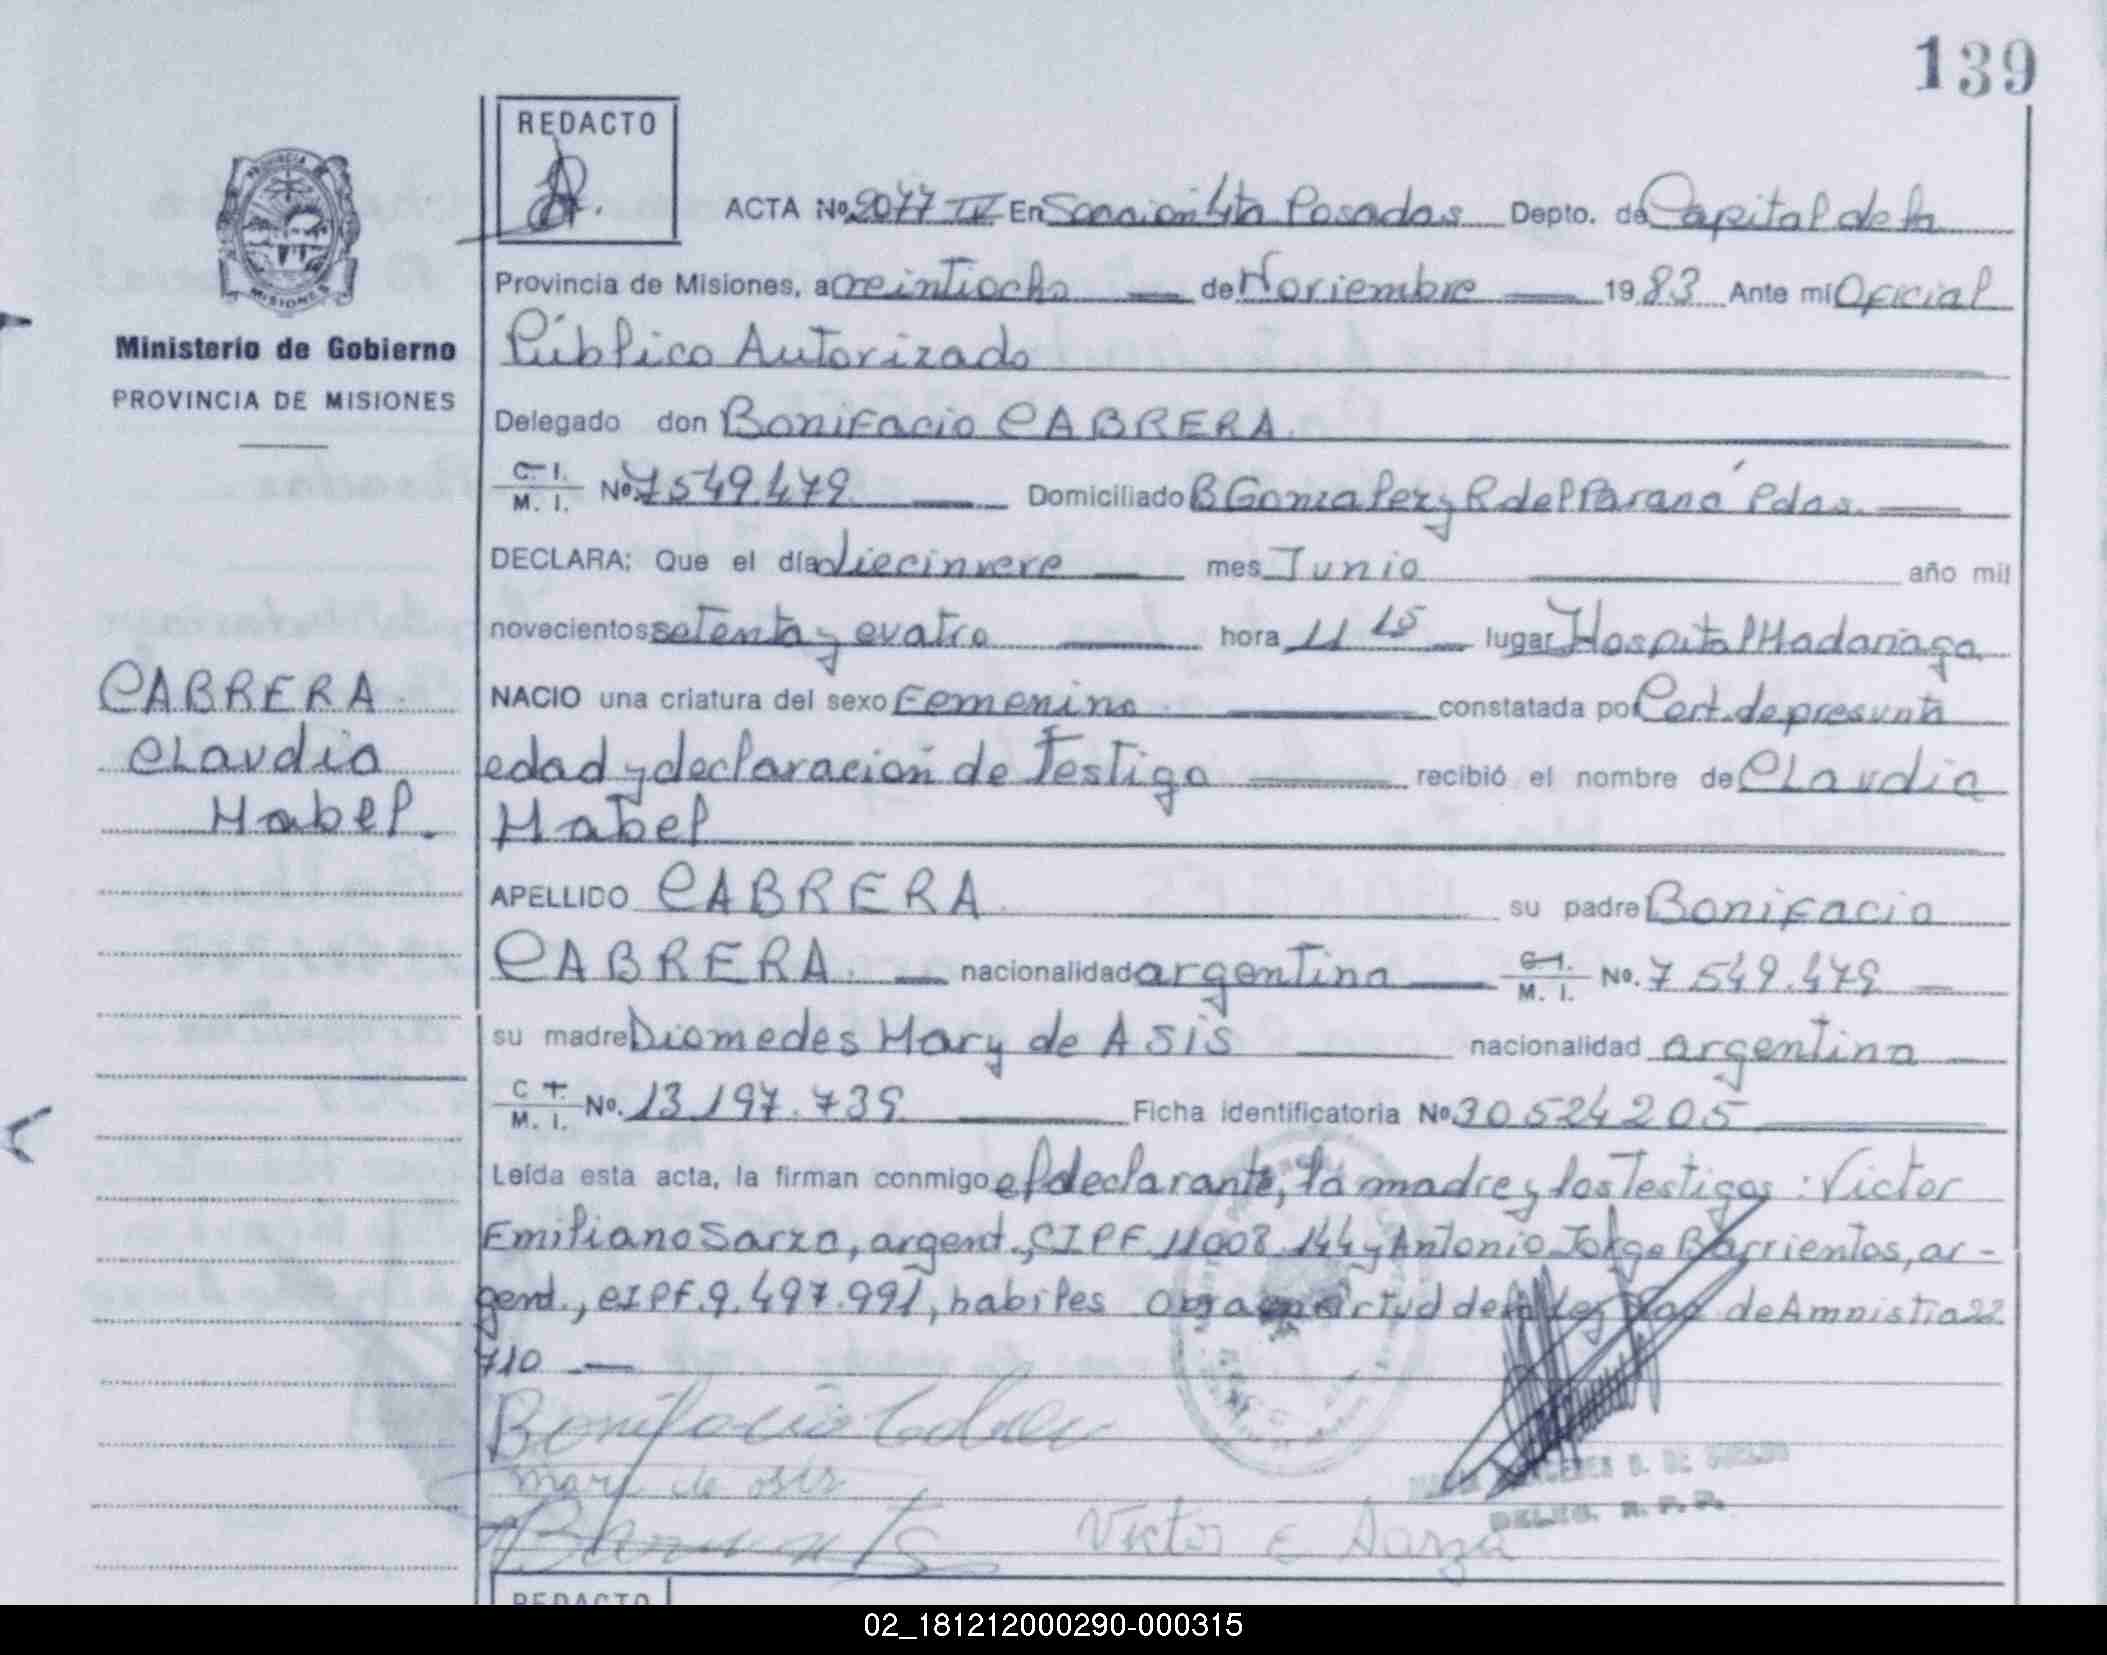 139
REDACTO
ACTA Nº 2077 IV En Sección 4ta Posadas Depto. de Capital de la
Provincia de Misiones, a veintiocho de Noviembre 1983 Ante mí Oficial
Público Autorizado
Ministerio de Gobierno
PROVINCIA DE MISIONES
Delegado don Bonifacio CABRERA.
C. I.
M. I. Nº 7549.479 Domiciliado B Gonzalez y R del Paraná Pdas.
DECLARA: Que el día diecinueve mes Junio año mil
novecientos setenta y cuatro hora 11 15 lugar Hospital Madariaga
CABRERA
Claudia
Mabel.
NACIO una criatura del sexo Femenino constatada por Cert. de presunta
edad y declaración de Testigo recibió el nombre de Claudia
Mabel
APELLIDO CABRERA su padre Bonifacio
CABRERA. nacionalidad argentina C. I.
M. I. No. 7 549.479
su madre Diomedes Mary de ASIS nacionalidad argentina
C. I.
M. I. No. 13 197.739 Ficha identificatoria Nº 30524205
Leída esta acta, la firman conmigo el declarante, la madre y los Testigos: Victor
Emiliano Sarza, argent., CIPF 11008.144 y Antonio Jorge Barrientos, ar-
gent., CIPF. 9.497.991, habiles Obra en virtud de la Ley de Amnistia 22.
710
Bonifacio Cabrera
mary de asis
Victor E Sarza
DELEG. R. P. P.
REDACTO
02_181212000290-000315